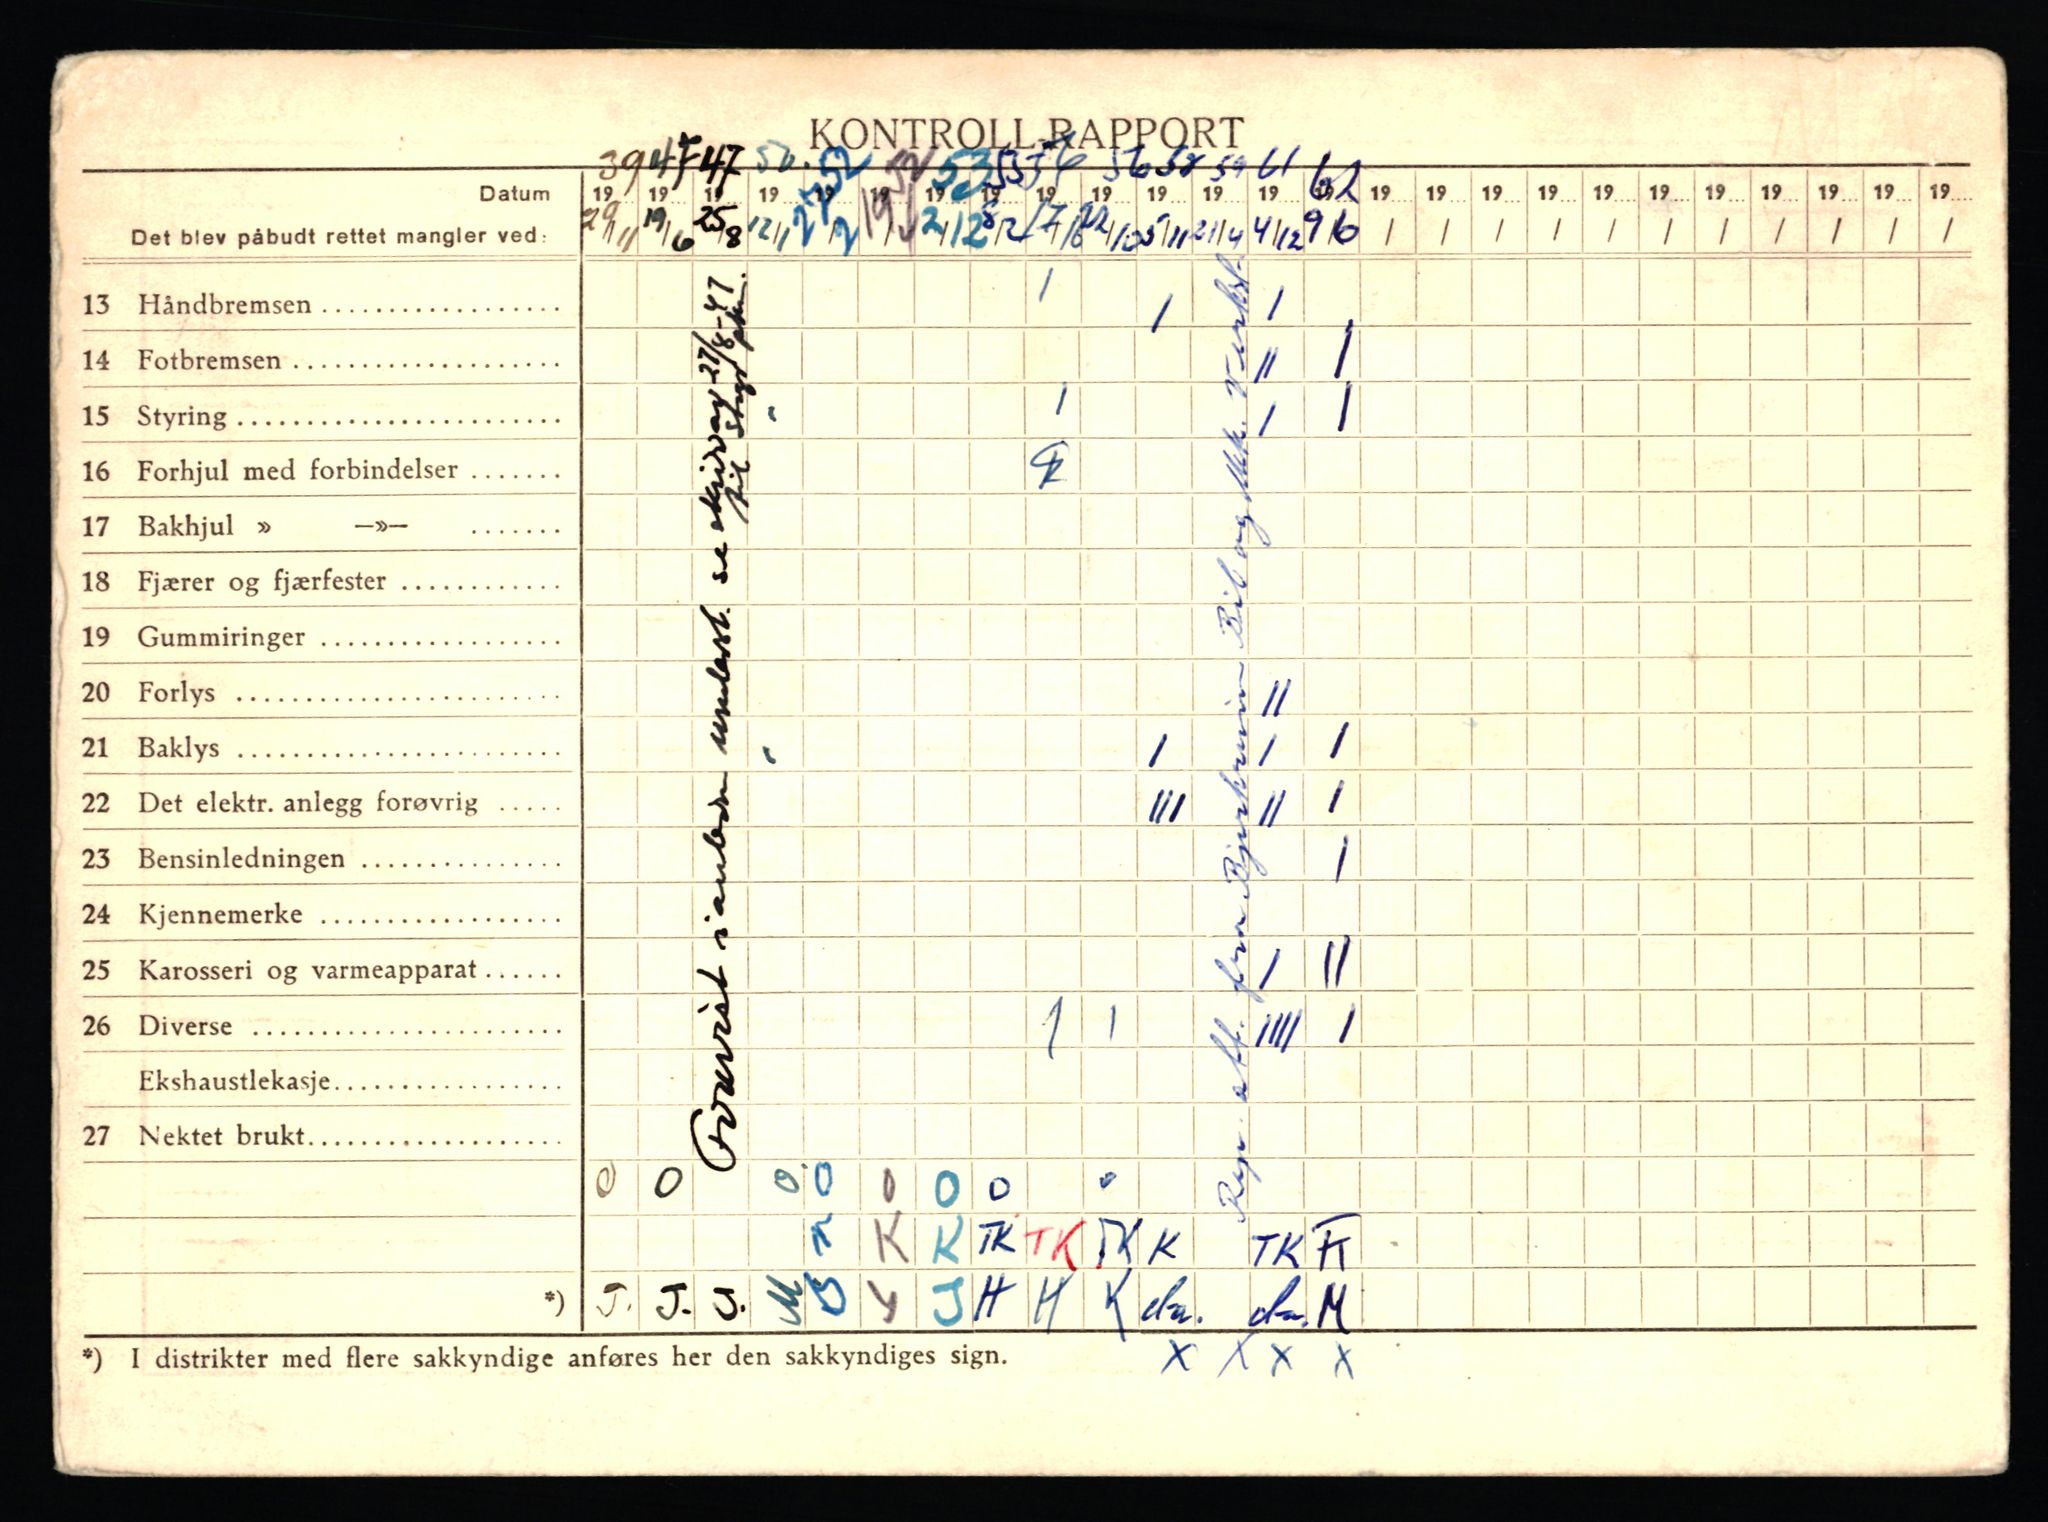 KONTROLL-RAPPORT
39 47 47 52 52 53 55 56 56 58 59 61 62
Datum 19 19 19 19 19 19 19 19 19 19 19 19 19 19 19 19 19 19 19 19 19 19 19 19
Det blev påbudt rettet mangler ved: 29/11 19/6 25/8 12/1 27/2 19/ 2/12 8/2 17/ 22/10 5/11 21/4 4/12 9/6
13 Håndbremsen I I I
14 Fotbremsen II I
15 Styring I I I
16 Forhjul med forbindelser
17 Bakhjul » —»—
18 Fjærer og fjærfester
19 Gummiringer
20 Forlys II
21 Baklys I I I
22 Det elektr. anlegg forøvrig III II I
23 Bensinledningen I
24 Kjennemerke
25 Karosseri og varmeapparat I II
26 Diverse I I IIII I
Ekshaustlekasje
27 Nektet brukt
Fremvist i underst. se 27/8-47.
til
Rep. att. fra Bjerkreim Bil og Mek. Verkst.
0 0 0 0 0 0 0
K K TK TK TK K TK
*) J. J. J. M J H H K da. da. M
*) I distrikter med flere sakkyndige anføres her den sakkyndiges sign.
x x x x